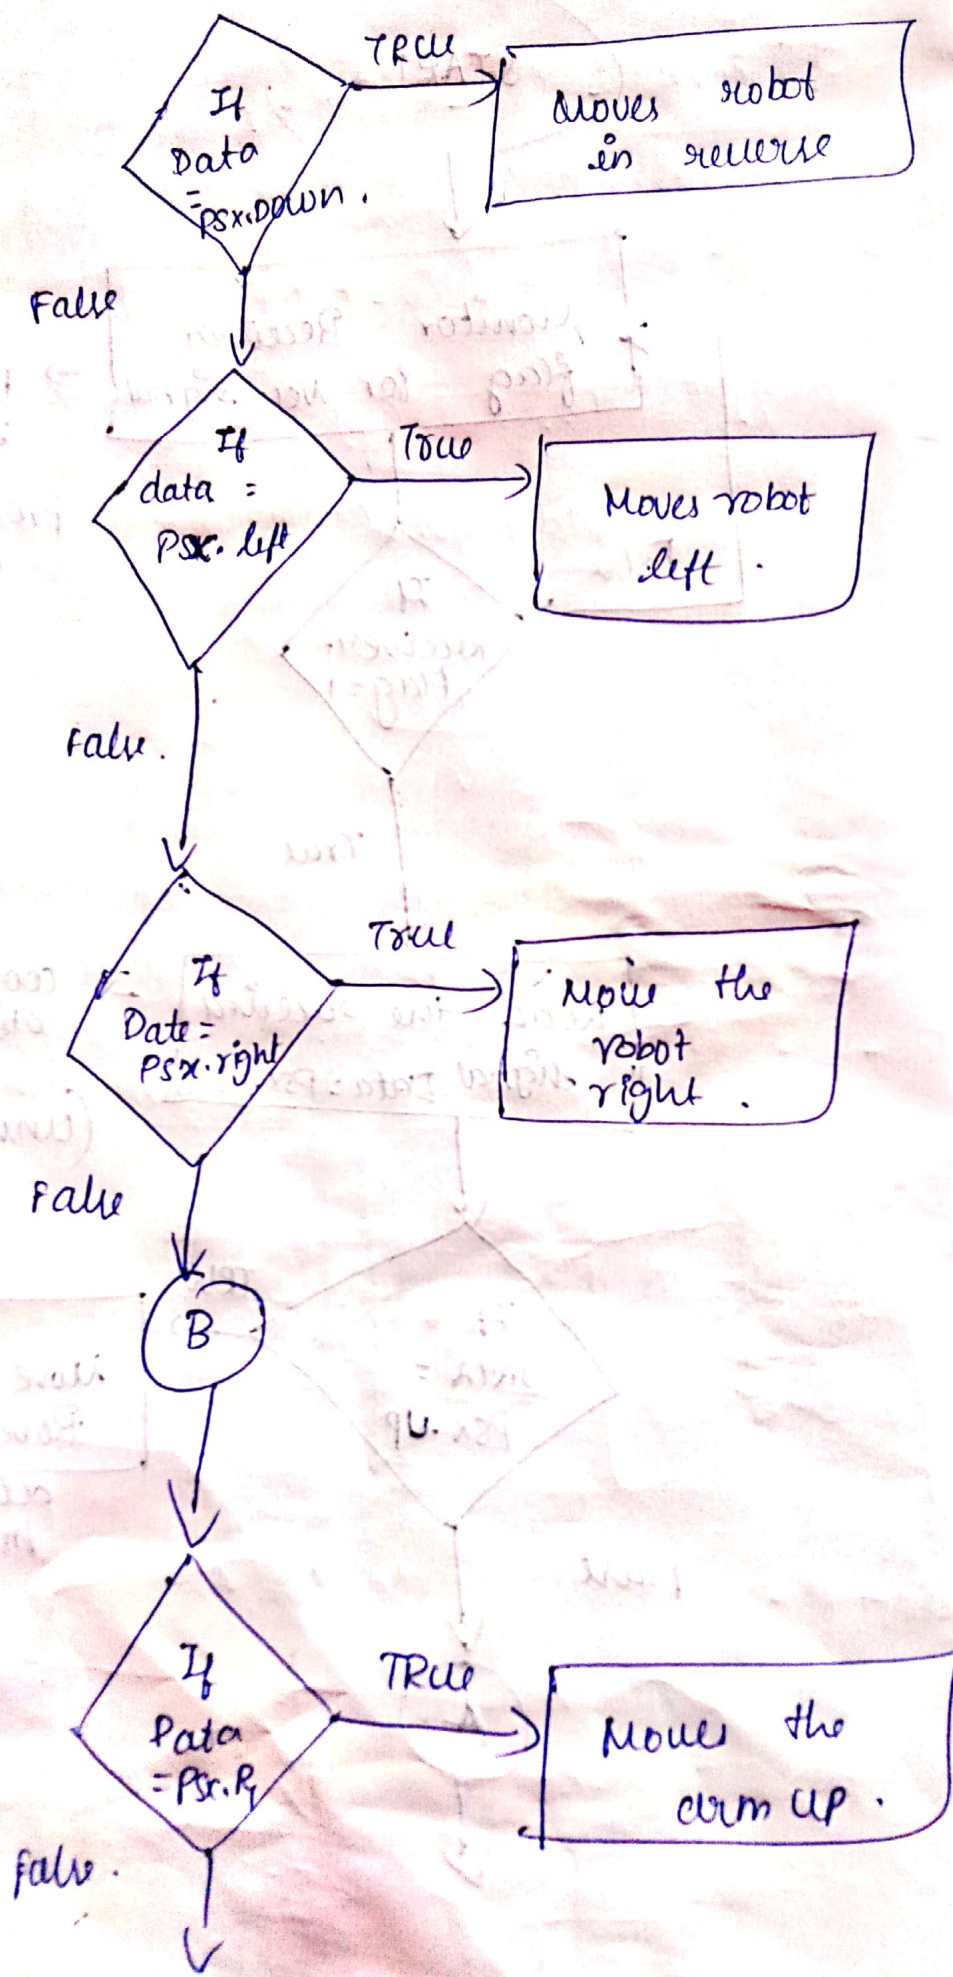 If
Data
=
PSX.DOWN.
TRUE
Moves robot
in reverse
False
If
data =
PSX. left
True
Moves robot
left .
False.
If
Date =
PSX.right
True
Move the
robot
right .
False
B
If
Data
=PSX.R1
TRUE
Moves the
arm UP .
False.
Monitor Receiver
flag for new
If
Flag=1
True